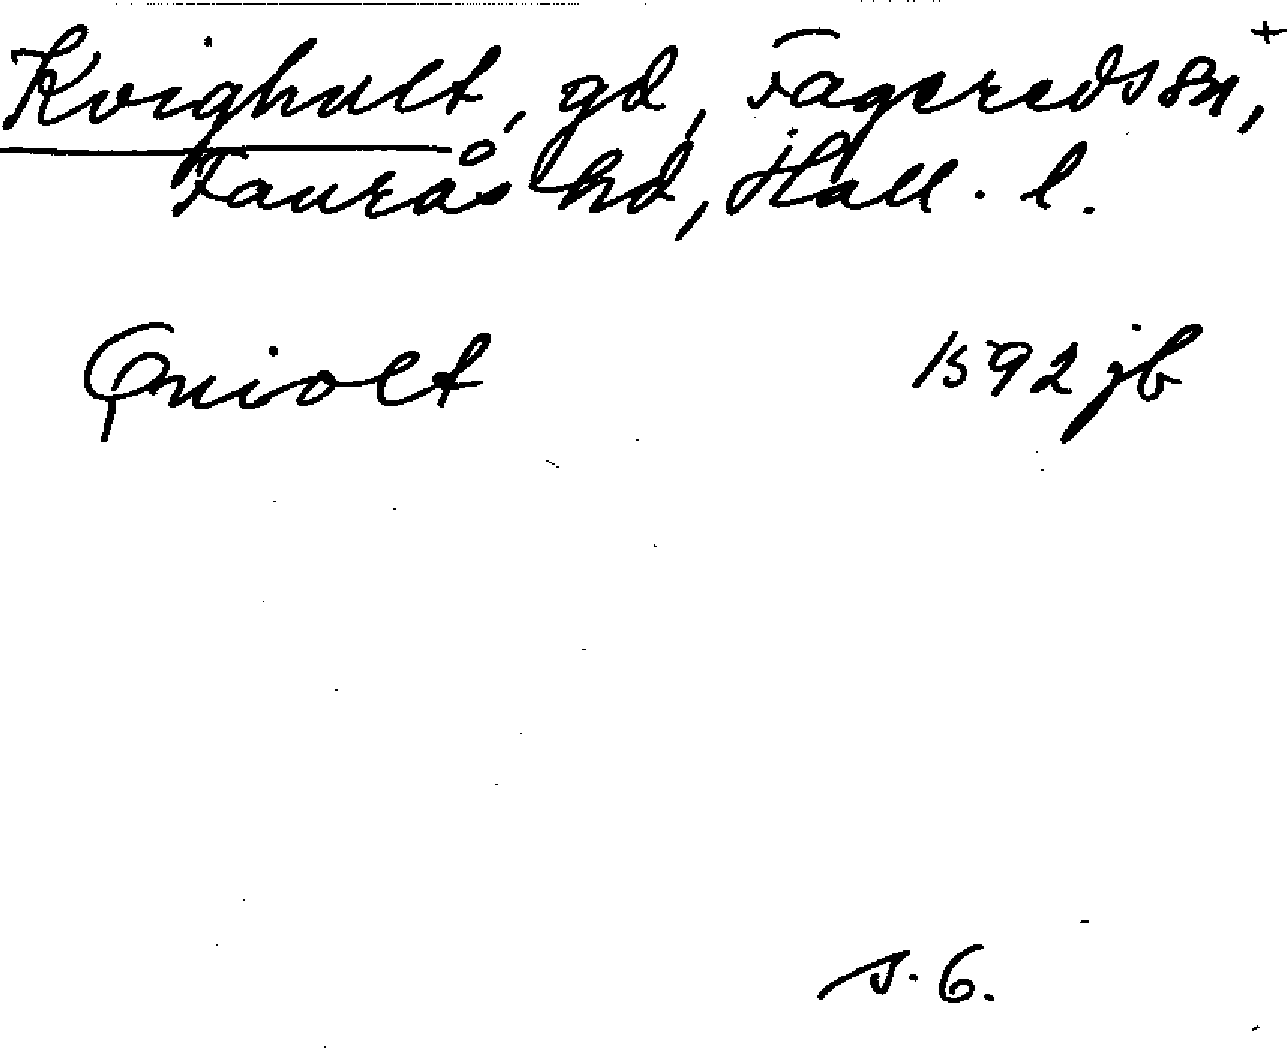 Kvighult, gd, Fageredssn,+
Faurås hd, Hall. l.
Quiolt 1592 jb
s. 6.